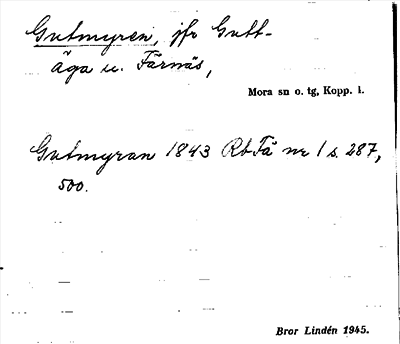 Gutmyren, jfr Gutt-
äga u. Färnäs,
Mora sn o. tg, Kopp. l.
Gutmyran 1843 Rb Fä nr 1 s. 287,
500.
Bror Lindén 1945.